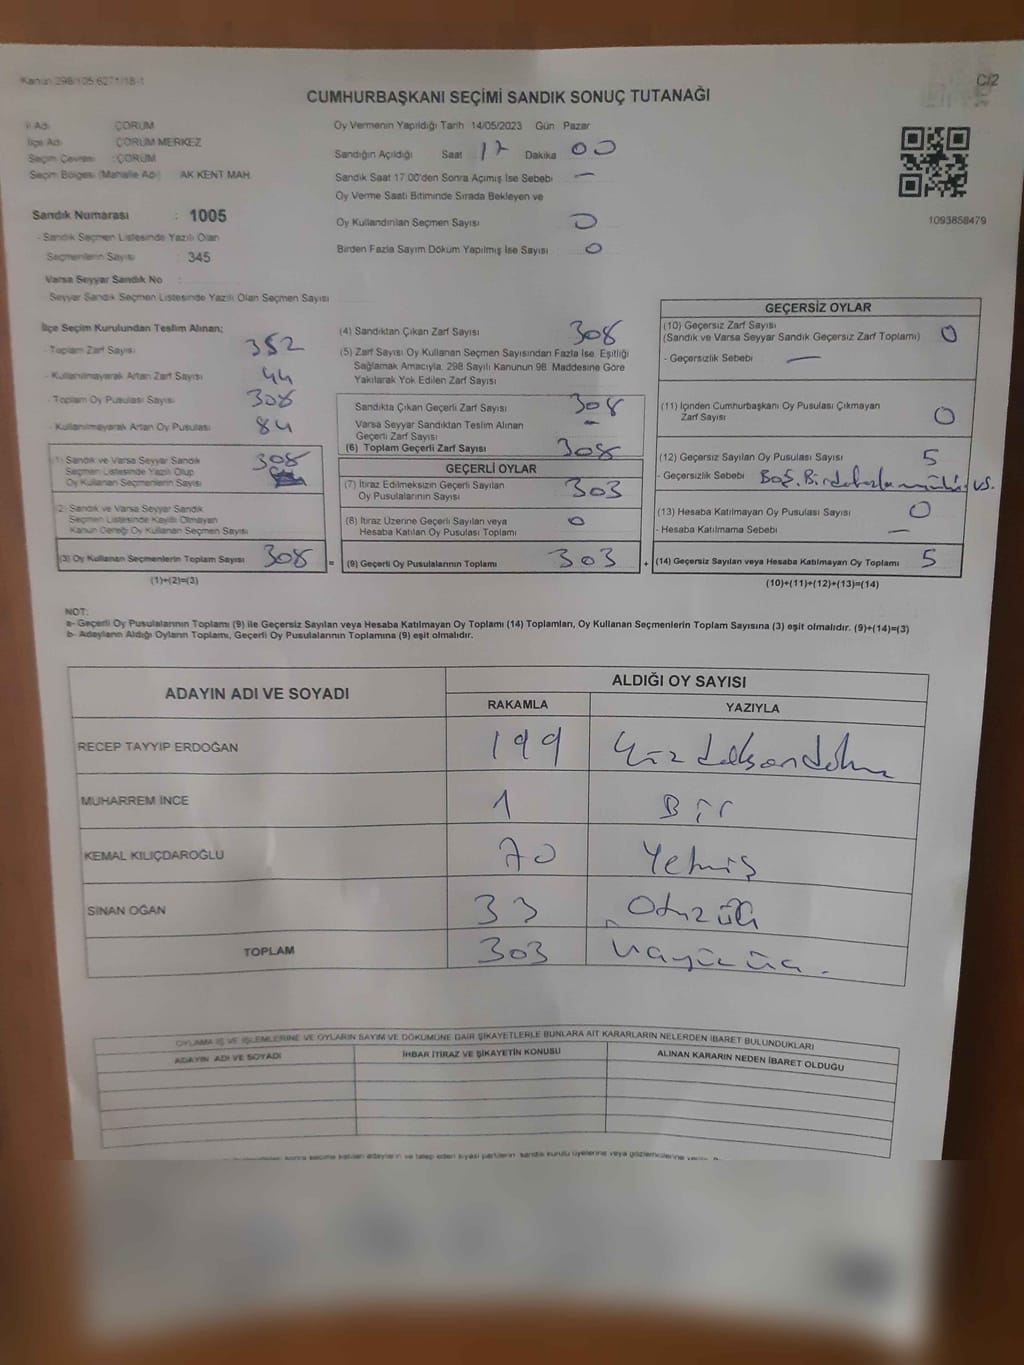 Kanun 298/105 6271/18-1
C/2
CUMHURBAŞKANI SEÇİMİ SANDIK SONUÇ TUTANAĞI
İl Adı : ÇORUM
İlçe Adı : ÇORUM MERKEZ
Seçim Çevresi : ÇORUM
Seçim Bölgesi (Mahalle Adı) AK KENT MAH.
Sandık Numarası : 1005
- Sandık Seçmen Listesinde Yazılı Olan
Seçmenlerin Sayısı : 345
Varsa Seyyar Sandık No :
- Seyyar Sandık Seçmen Listesinde Yazılı Olan Seçmen Sayısı
Oy Vermenin Yapıldığı Tarih 14/05/2023 Gün Pazar
Sandığın Açıldığı Saat 17 Dakika 00
Sandık Saat 17:00'den Sonra Açımış İse Sebebi —
Oy Verme Saati Bitiminde Sırada Bekleyen ve
Oy Kullandırılan Seçmen Sayısı 0
Birden Fazla Sayım Döküm Yapılmış İse Sayısı 0
1093858479
İlçe Seçim Kurulundan Teslim Alınan;
- Toplam Zarf Sayısı 352
- Kullanılmayarak Artan Zarf Sayısı 44
- Toplam Oy Pusulası Sayısı 308
- Kullanılmayarak Artan Oy Pusulası 84
(1) Sandık ve Varsa Seyyar Sandık 308
Seçmen Listesinde Yazılı Olup
Oy Kullanan Seçmenlerin Sayısı
(2) Sandık ve Varsa Seyyar Sandık
Seçmen Listesinde Kayıtlı Olmayan
Kanun Gereği Oy Kullanan Seçmen Sayısı
(3) Oy Kullanan Seçmenlerin Toplam Sayısı 308 =
(1)+(2)=(3)
(4) Sandıktan Çıkan Zarf Sayısı 308
(5) Zarf Sayısı Oy Kullanan Seçmen Sayısından Fazla İse, Eşitliği
Sağlamak Amacıyla, 298 Sayılı Kanunun 98. Maddesine Göre
Yakılarak Yok Edilen Zarf Sayısı
Sandıkta Çıkan Geçerli Zarf Sayısı 308
Varsa Seyyar Sandıktan Teslim Alınan
Geçerli Zarf Sayısı —
(6) Toplam Geçerli Zarf Sayısı 308
GEÇERLİ OYLAR
(7) İtiraz Edilmeksizin Geçerli Sayılan
Oy Pusulalarının Sayısı 303
(8) İtiraz Üzerine Geçerli Sayılan veya
Hesaba Katılan Oy Pusulası Toplamı 0
(9) Geçerli Oy Pusulalarının Toplamı 303 +
GEÇERSİZ OYLAR
(10) Geçersiz Zarf Sayısı
(Sandık ve Varsa Seyyar Sandık Geçersiz Zarf Toplamı) 0
- Geçersizlik Sebebi —
(11) İçinden Cumhurbaşkanı Oy Pusulası Çıkmayan
Zarf Sayısı 0
(12) Geçersiz Sayılan Oy Pusulası Sayısı 5
- Geçersizlik Sebebi Boş, Birden fazla mühür vs.
(13) Hesaba Katılmayan Oy Pusulası Sayısı 0
- Hesaba Katılmama Sebebi —
(14) Geçersiz Sayılan veya Hesaba Katılmayan Oy Toplamı 5
(10)+(11)+(12)+(13)=(14)
NOT:
a- Geçerli Oy Pusulalarının Toplamı (9) ile Geçersiz Sayılan veya Hesaba Katılmayan Oy Toplamı (14) Toplamları, Oy Kullanan Seçmenlerin Toplam Sayısına (3) eşit olmalıdır. (9)+(14)=(3)
b- Adayların Aldığı Oyların Toplamı, Geçerli Oy Pusulalarının Toplamına (9) eşit olmalıdır.
ADAYIN ADI VE SOYADI ALDIĞI OY SAYISI
RAKAMLA YAZIYLA
RECEP TAYYIP ERDOĞAN 199 Yüz doksandokuz
MUHARREM İNCE 1 Bir
KEMAL KILIÇDAROĞLU 70 Yetmiş
SİNAN OĞAN 33 Otuzüç
TOPLAM 303 üçyüzüç.
OYLAMA İŞ VE İŞLEMLERİNE VE OYLARIN SAYIM VE DÖKÜMÜNE DAİR ŞİKAYETLERLE BUNLARA AİT KARARLARIN NELERDEN İBARET BULUNDUKLARI
ADAYIN ADI VE SOYADI İHBAR İTİRAZ VE ŞİKAYETİN KONUSU ALINAN KARARIN NEDEN İBARET OLDUĞU
sonra seçime katılan adayların ve talep eden siyasi partilerin sandık kurulu üyelerine veya gözlemcilerine